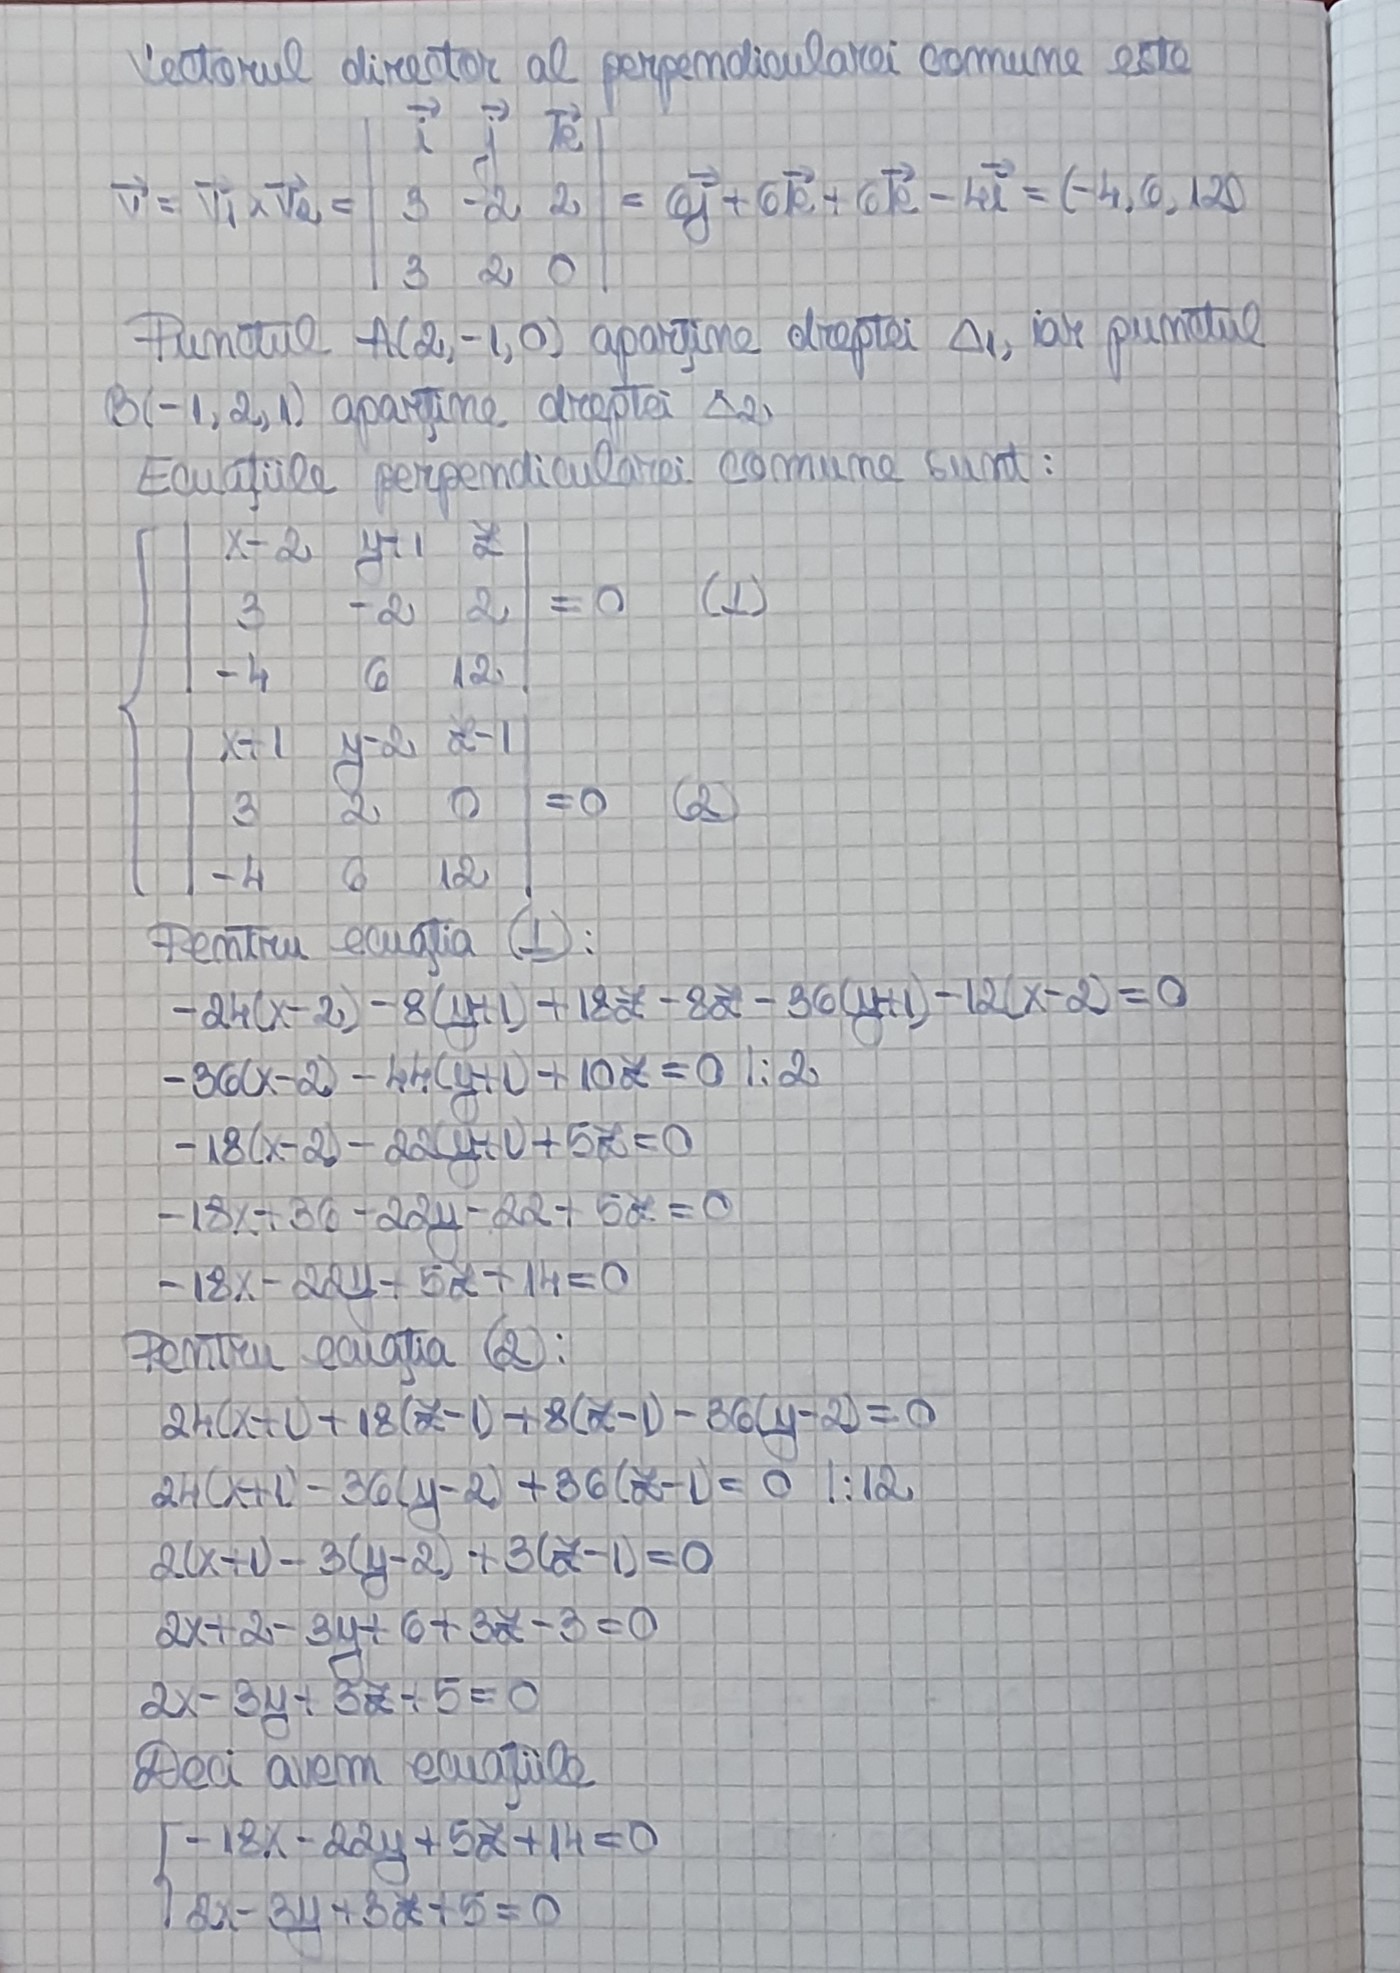 Vectorul director al perpendicularei comune este
v⃗ = v⃗₁ × v⃗₂ = | i⃗ j⃗ k⃗ |
| 3 -2 2 | = 6j⃗ + 6k⃗ + 6k⃗ - 4i⃗ = (-4, 6, 12)
| 3 2 0 |
Punctul A(2, -1, 0) aparține dreptei Δ1, iar punctul
B(-1, 2, 1) aparține dreptei Δ2.
Ecuațiile perpendicularei comune sunt:
| x-2 y+1 z |
| 3 -2 2 | = 0 (1)
| -4 6 12 |
| x+1 y-2 z-1 |
| 3 2 0 | = 0 (2)
| -4 6 12 |
Pentru ecuația (1):
-24(x-2) - 8(y+1) + 18z - 8z - 36(y+1) - 12(x-2) = 0
-36(x-2) - 44(y+1) + 10z = 0 |:2
-18(x-2) - 22(y+1) + 5z = 0
-18x + 36 - 22y - 22 + 5z = 0
-18x - 22y + 5z + 14 = 0
Pentru ecuația (2):
24(x+1) + 18(z-1) + 8(z-1) - 36(y-2) = 0
24(x+1) - 36(y-2) + 36(z-1) = 0 |:12
2(x+1) - 3(y-2) + 3(z-1) = 0
2x + 2 - 3y + 6 + 3z - 3 = 0
2x - 3y + 3z + 5 = 0
Deci avem ecuațiile
-18x - 22y + 5z + 14 = 0
2x - 3y + 3z + 5 = 0